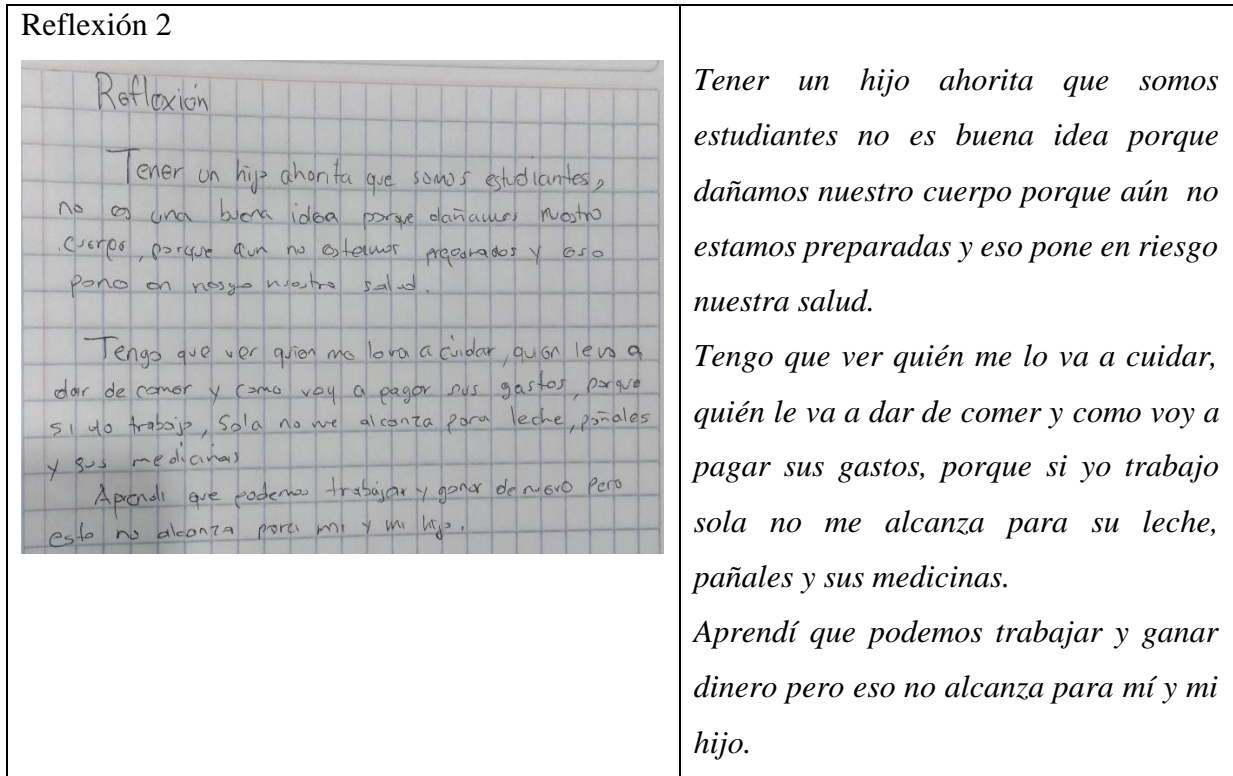 Reflexión 2
Reflexión
Tener un hijo ahorita que somos estudiantes,
no es una buena idea porque dañamos nuestro
cuerpo, porque aun no estamos preparados y eso
pone en riesgo nuestra salud.
Tengo que ver quien me lo va a cuidar, quien le va a
dar de comer y como voy a pagar sus gastos, porque
si yo trabajo, Sola no me alcanza para leche, pañales
y sus medicinas
Aprendi que podemos trabajar y ganar de nuevo pero
esto no alcanza para mi y mi hijo.
Tener un hijo ahorita que somos
estudiantes no es buena idea porque
dañamos nuestro cuerpo porque aún no
estamos preparadas y eso pone en riesgo
nuestra salud.
Tengo que ver quién me lo va a cuidar,
quién le va a dar de comer y como voy a
pagar sus gastos, porque si yo trabajo
sola no me alcanza para su leche,
pañales y sus medicinas.
Aprendí que podemos trabajar y ganar
dinero pero eso no alcanza para mí y mi
hijo.